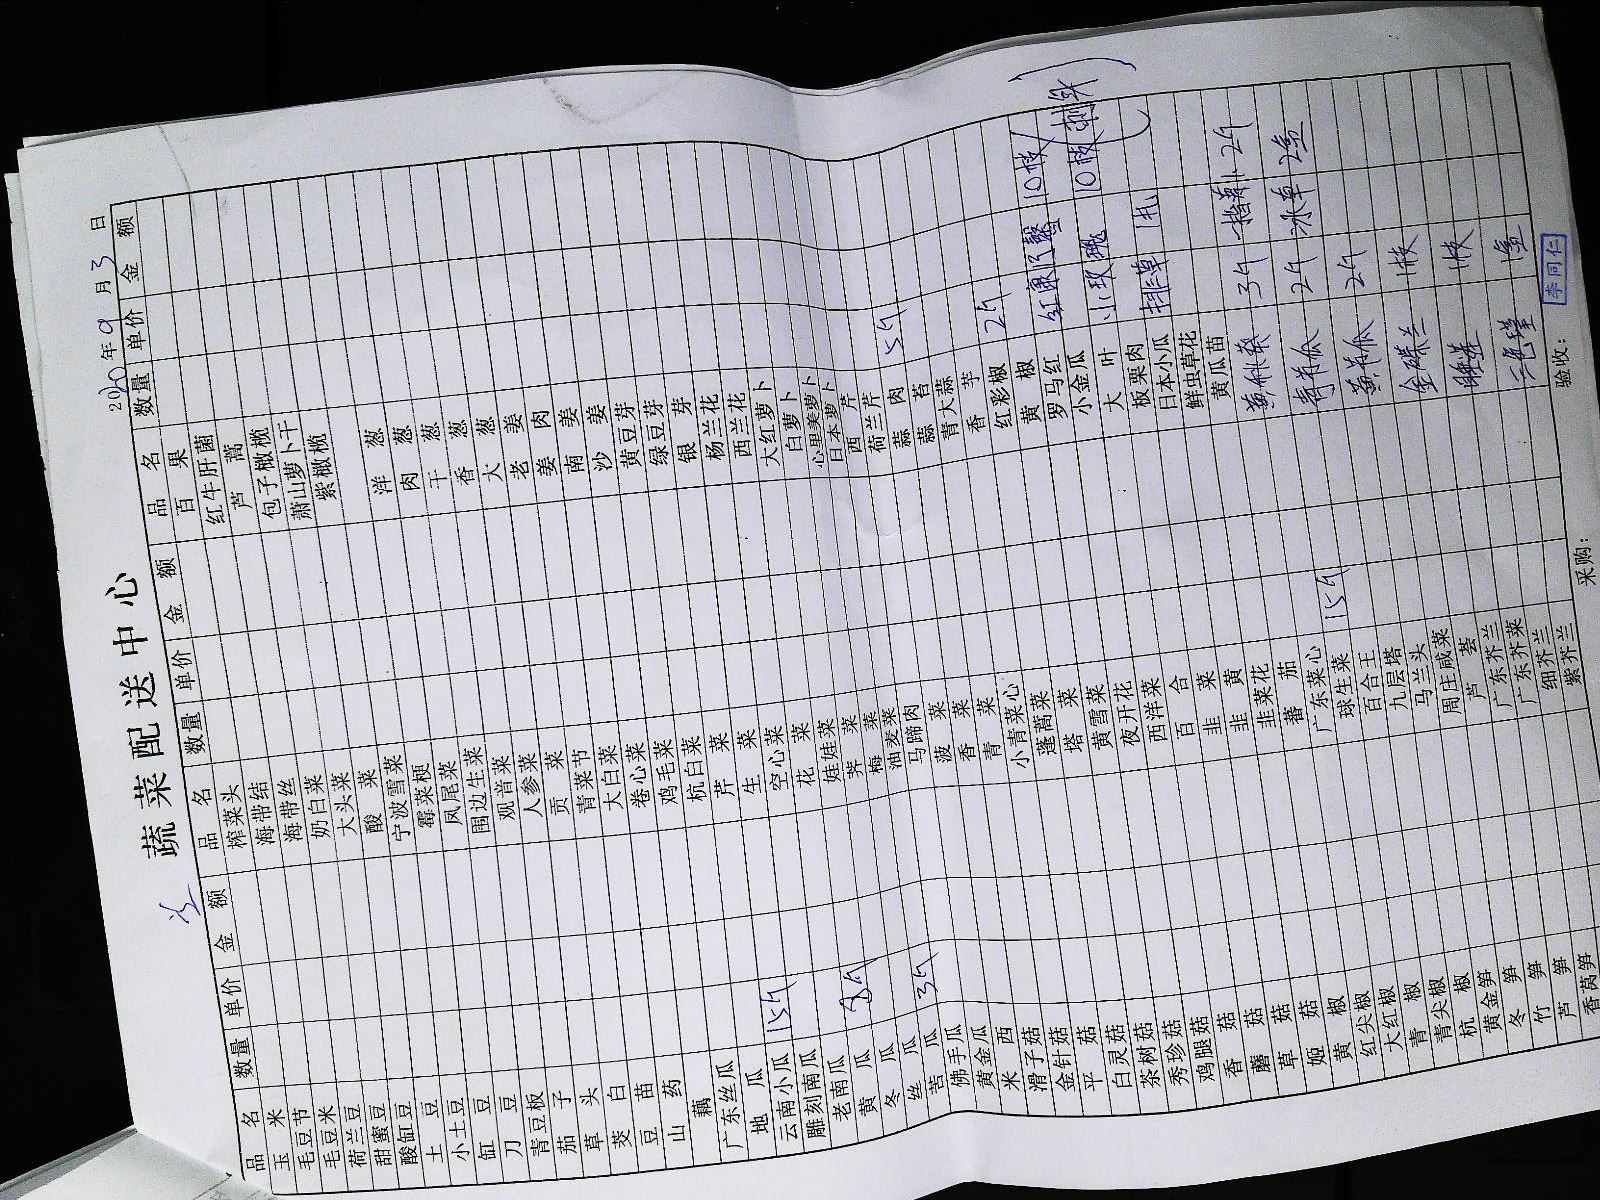 冷
蔬菜配送中心
2020年9月3日
品名 数量 单价 金额 品名 数量 单价 金额 品名 数量 单价 金额
玉米 榨菜头 百果
毛豆节 海带结 红牛肝菌
毛豆米 海带丝 芦蒿
荷兰豆 奶白菜 包子橄榄
甜蜜豆 大头菜 萧山萝卜干
酸缸豆 酸菜 紫橄榄
土豆 宁波雪菜
小土豆 霉菜梗 洋葱
缸豆 凤尾菜 肉葱
刀豆 围边生菜 干葱
青豆板 观音菜 香葱
茄子 人参菜 大葱
草头 贡菜 老姜
茭白 青菜节 姜肉
豆苗 大白菜 南姜
山药 卷心菜 沙姜
藕 鸡毛菜 黄豆芽
广东丝瓜 杭白菜 绿豆芽
地瓜 芹菜 银芽
云南小瓜 15斤 生菜 杨兰花
雕刻南瓜 空心菜 西兰花
老南瓜 花菜 大红萝卜
黄瓜 8斤 娃娃菜 白萝卜
冬瓜 荠菜 心里美萝卜
丝瓜 梅菜 日本萝卜
苦瓜 3斤 油麦菜 西芹
佛手瓜 马蹄肉 荷兰芹 5斤
黄金瓜 菠菜 蒜肉
米西 香菜 蒜苔
滑子菇 青菜 青大蒜
金针菇 小青菜心 香芋
平菇 蓬蒿菜 红彩椒 2斤
白灵菇 塔菜 黄椒
茶树菇 黄雪菜 罗马红 10枝
秀珍菇 夜开花 小金瓜
鸡腿菇 西洋菜 大叶 小玫瑰 10枝
香菇 百合 板栗肉
蘑菇 韭菜 日本小瓜 排草 1扎
草菇 韭黄 鲜虫草花
姬菇 韭菜花 黄瓜苗
黄椒 蕃茄 15斤 3斤 2斤
红尖椒 广东菜心
大红椒 球生菜 2斤 冰草 2盒
青椒 百合王
青尖椒 九层塔 2斤
杭椒 马兰头
黄金笋 周庄咸菜 1枝
冬笋 芦荟
竹笋 广东芥兰 1枝
芦笋 广东芥菜
香莴笋 细芥兰 三色堇 1盒
紫芥兰
采购： 验收： 李同仁